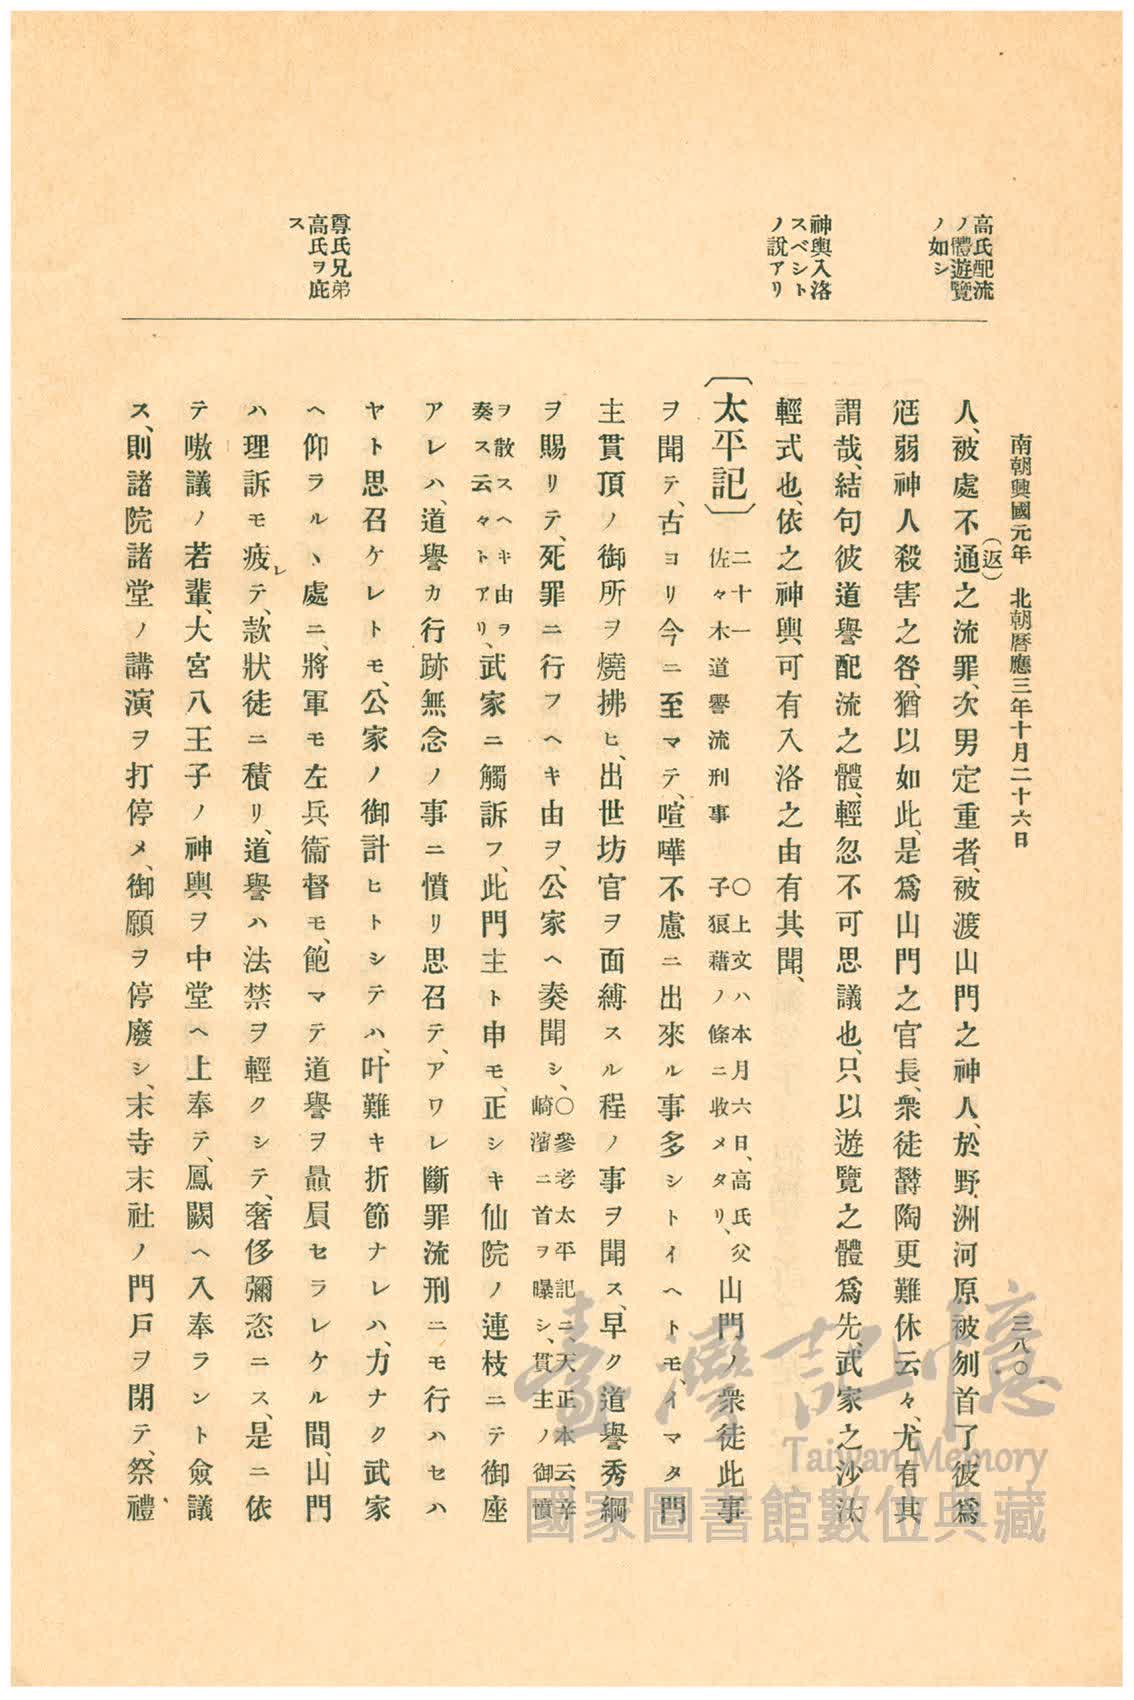 南朝興國元年 北朝曆應三年十月二十六日
三八〇
高氏配流
ノ體遊覽
ノ如シ
神輿入洛
スベシト
ノ說アリ
尊氏兄弟
高氏ヲ庇
ス
人、被處不通(返)之流罪、次男定重者、被渡山門之神人、於野洲河原被刎首了、彼爲
尩弱神人殺害之咎、猶以如此、是爲山門之官長、衆徒欝陶更難休云々、尤有其
謂哉、結句彼道譽配流之體、輕忽不可思議也、只以遊覽之體爲先、武家之沙汰
輕式也、依之神輿可有入洛之由有其聞、
〔太平記〕 二十一
佐々木道譽流刑事 〇上文ハ本月六日、高氏父
子狼藉ノ條ニ收メタリ、 山門ノ衆徒此事
ヲ聞テ、古ヨリ今ニ至マテ、喧嘩不慮ニ出來ル事多シトイヘトモ、イマタ門
主貫頂ノ御所ヲ燒拂ヒ、出世坊官ヲ面縛スル程ノ事ヲ聞ス、早ク道譽秀綱
ヲ賜リテ、死罪ニ行フヘキ由ヲ、公家ヘ奏聞シ、〇參考太平記ニ、天正本云、辛
崎濱ニ首ヲ曝シ、貫主ノ御憤
ヲ散スヘキ由ヲ
奏ス云々トアリ、 武家ニ觸訴フ、此門主ト申モ、正シキ仙院ノ連枝ニテ御座
アレハ、道譽カ行跡無念ノ事ニ憤リ思召テ、アワレ斷罪流刑ニモ行ハセハ
ヤト思召ケレトモ、公家ノ御計ヒトシテハ、叶難キ折節ナレハ、力ナク武家
ヘ仰ラルヽ處ニ、將軍モ左兵衞督モ、飽マテ道譽ヲ贔屓セラレケル間、山門
ハ理訴モ疲レテ、款狀徒ニ積リ、道譽ハ法禁ヲ輕クシテ、奢侈彌恣ニス、是ニ依
テ嗷議ノ若輩、大宮八王子ノ神輿ヲ中堂ヘ上奉テ、鳳闕ヘ入奉ラント僉議
ス、則諸院諸堂ノ講演ヲ打停メ、御願ヲ停廢シ、末寺末社ノ門戶ヲ閉テ、祭禮
臺灣記憶
Taiwan Memory
國家圖書館數位典藏